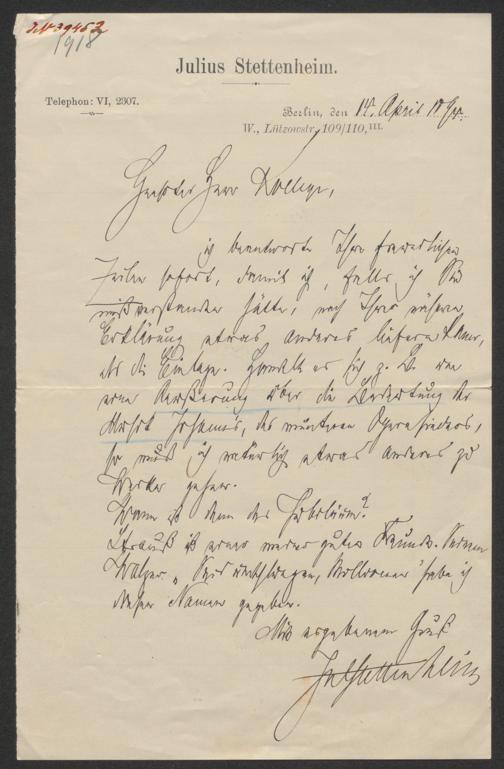 J.N. 39453
1918
Julius Stettenheim.
Telephon: VI, 2307.
Berlin, den 14. April
W., Lützowstr. 109/110, III.
Geehrter Herr Kollege,
ich beantworte Ihre freundlichen
Zeilen sofort, damit ich, falls ich Sie
mißverstanden hätte, nach Ihrer näheren
Erklärung etwas anderes liefern kann,
als die Einlage. Handelt es sich z. B. um
eine Aeußerung über die Bedeutung der
Musik Johann's, des munteren
so muß ich natürlich etwas anderes zu
Werke gehen.
Wann ist denn das Jubiläum?
Strauß ist einer meiner guten Freunde. Seinem
Walzer „Seid umschlungen, Millionen" habe ich
diesen Namen gegeben.
Mit ergebenem Gruß
JulStettenheim